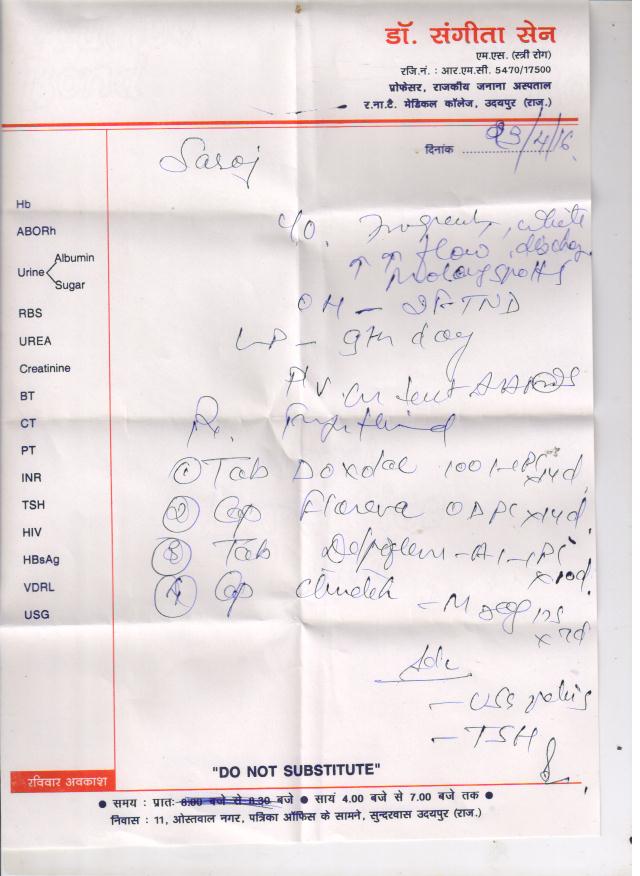 डॉ. संगीता सेन
एम.एस. (स्त्री रोग)
रजि.नं. : आर.एम.सी. 5470/17500
प्रोफेसर, राजकीय जनाना अस्पताल
र.ना.टै. मेडिकल कॉलेज, उदयपुर (राज.)
दिनांक 23/4/16
Saroj
Hb
ABORh
Urine Albumin
Sugar
RBS
UREA
Creatinine
BT
CT
PT
INR
TSH
HIV
HBsAg
VDRL
USG
C/O. white
↑↑ flow
OH -
LP - 9th day
PV
Rx
① Tab Doxolac 100 1-1 PC x14d
② Cap OD PC x14d
③ Tab x10d
④ Cap
x 7d
Adv
- USG pelvis
- TSH
"DO NOT SUBSTITUTE"
रविवार अवकाश
● समय : प्रातः 8.00 बजे से 8.30 बजे ● सायं 4.00 बजे से 7.00 बजे तक ●
निवास : 11, ओस्तवाल नगर, पत्रिका ऑफिस के सामने, सुन्दरवास उदयपुर (राज.)